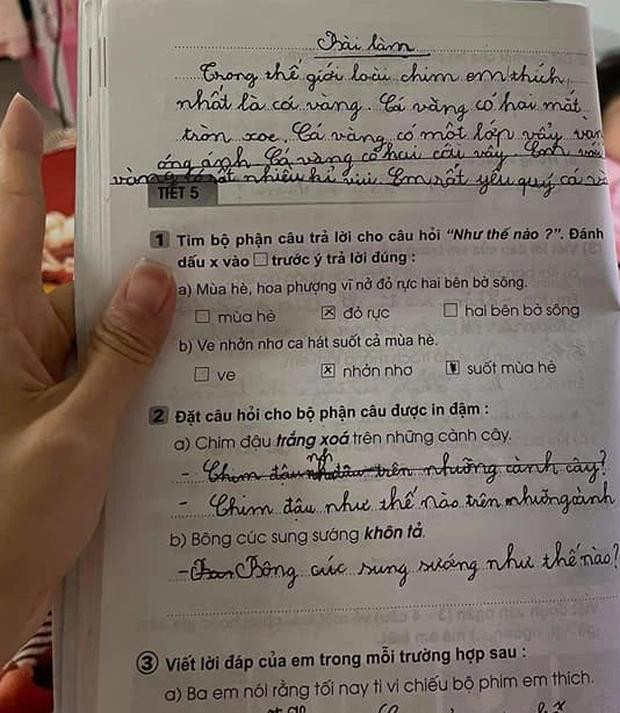 Bài làm
Trong thế giới loài chim em thích
nhất là cá vàng. Cá vàng có hai mắt
tròn xoe. Cá vàng có một lớp vẩy
óng ánh. Cá vàng có hai cái vây. Em
vàng rất nhiều khi vui. Em rất yêu quý cá
TIẾT 5
1 Tìm bộ phận câu trả lời cho câu hỏi “Như thế nào ?”. Đánh
dấu x vào □ trước ý trả lời đúng :
a) Mùa hè, hoa phượng vĩ nở đỏ rực hai bên bờ sông.
□ mùa hè ☒ đỏ rực □ hai bên bờ sông
b) Ve nhởn nhơ ca hát suốt cả mùa hè.
□ ve ☒ nhởn nhơ suốt mùa hè
2 Đặt câu hỏi cho bộ phận câu được in đậm :
a) Chim đậu trắng xoá trên những cành cây.
- Chim đậu trên những cành cây?
- Chim đậu như thế nào trên những cành
b) Bông cúc sung sướng khôn tả.
- Bông cúc sung sướng như thế nào?
3 Viết lời đáp của em trong mỗi trường hợp sau :
a) Ba em nói rằng tối nay ti vi chiếu bộ phim em thích.